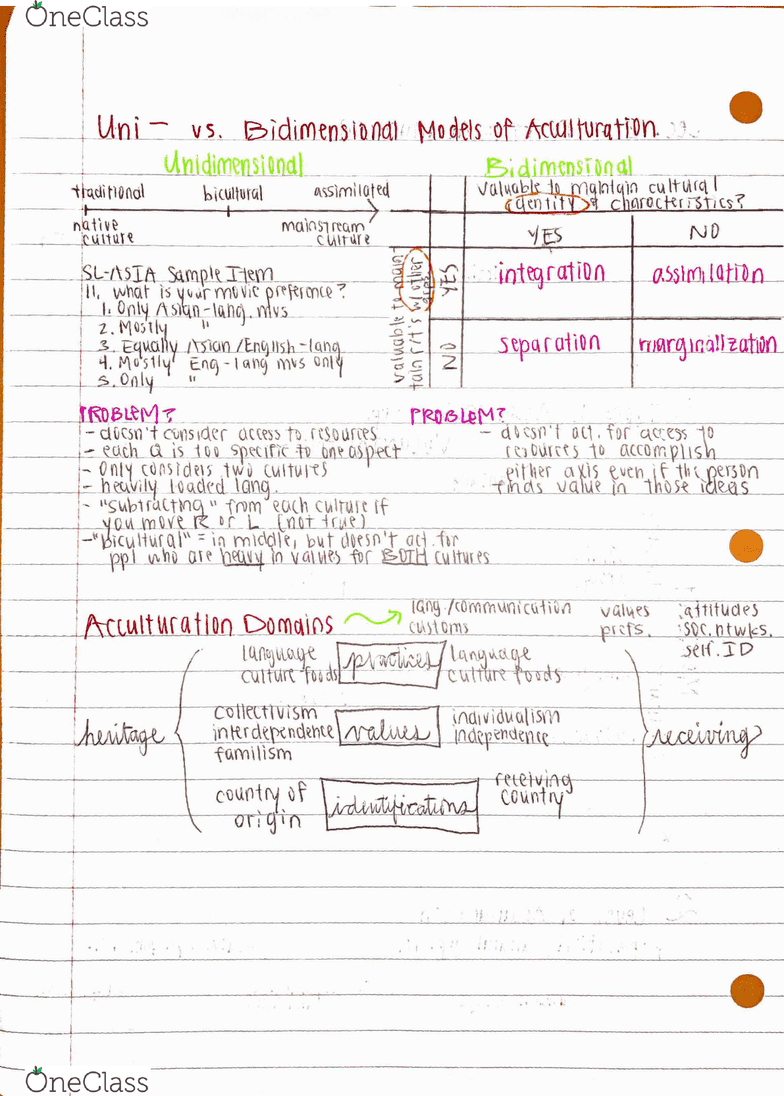 OneClass
Uni- vs. Bidimensional Models of Acculturation
Unidimensional
traditional bicultural assimilated
native culture
mainstream culture
SL-ASIA Sample Item
11. what is your movie preference?
1. Only Asian-lang. mvs
2. Mostly "
3. Equally Asian/English-lang
4. Mostly Eng-lang mvs only
5. Only "
PROBLEM?
- doesn't consider access to resources
- each Q is too specific to one aspect
- only considers two cultures
- heavily loaded lang.
- "subtracting" from each culture if
you move R or L (not true)
- "bicultural" = in middle, but doesn't act. for
ppl who are heavy in values for BOTH cultures
Bidimensional
valuable to maintain cultural
identity & characteristics?
YES NO
valuable to main-
tain r/t's w/ other
YES
integration assimilation
NO
separation marginalization
PROBLEM?
- doesn't act. for access to
resources to accomplish
either axis even if the person
finds value in those ideas
Acculturation Domains
lang./communication values attitudes
customs prefs. soc. ntwks.
self. ID
heritage
language practices language
culture foods culture foods
collectivism individualism
interdependence values independence
familism
country of origin identifications receiving country
receiving
OneClass